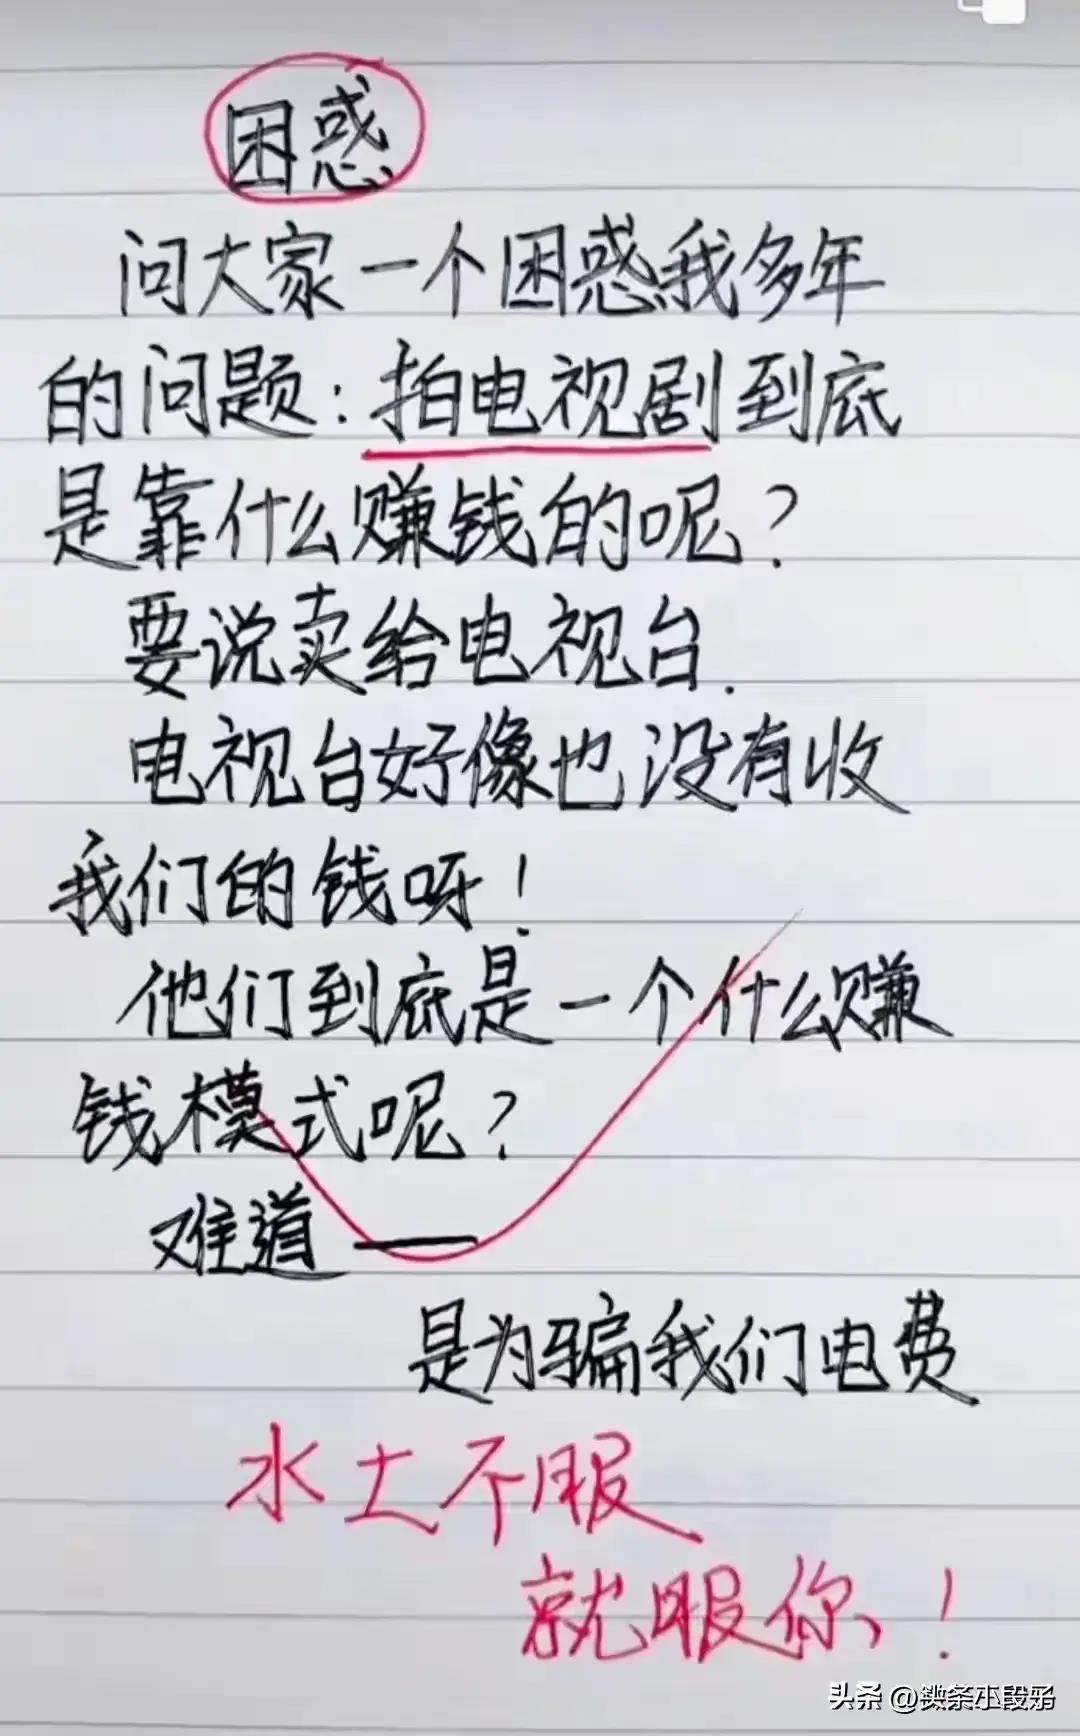 困惑
问大家一个困惑我多年
的问题:拍电视剧到底
是靠什么赚钱的呢?
要说卖给电视台.
电视台好像也没有收
我们的钱呀!
他们到底是一个什么赚
钱模式呢?
难道——
是为骗我们电费
水土不服
就服你、!
头条 @铁条小段子